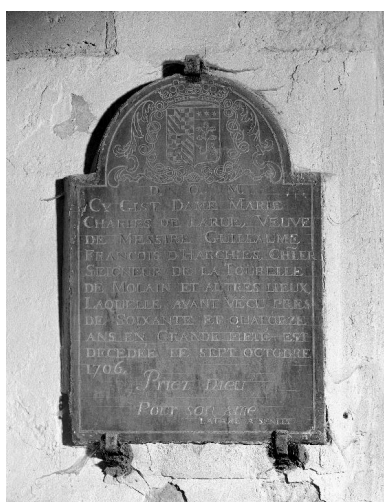 CY GIST DAME MARIE
CHARLES DE LARUE VEUVE
DE MESSIRE GUILLAUME
FRANCOIS D'HARCHIES CHLER
SEIGNEUR DE LA TOURELLE
DE MOLAIN ET AUTRES LIEUX
LAQUELLE AYANT VECU PRES
DE SOIXANTE ET QUATORZE
ANS EN GRANDE PIETE EST
DECEDEE LE SEPT OCTOBRE
1706.
Priez Dieu
Pour son ame